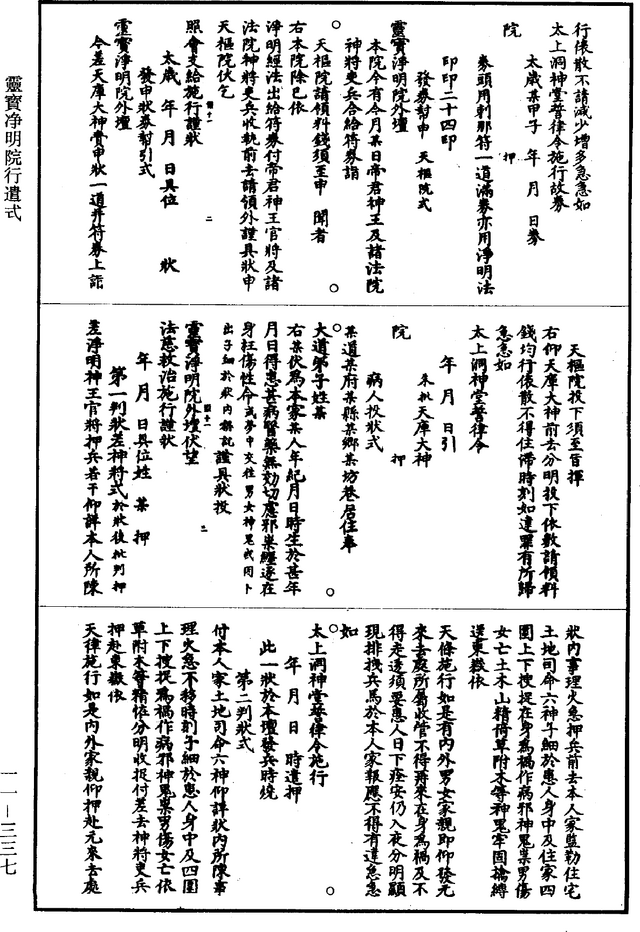 行俵散不請減少增多急急如
太上洞神堂誓律令施行故券
太歲某甲子 年 月 日券
院 押
券頭用剎那符一道滿券亦用淨明法
印印二十四印
發券對申 天樞院式
靈寶淨明院外壇
本院今有今月某日帝君神王及諸法院
神將吏兵合給符券詣
天樞院請領料錢須至申 聞者
右本院除已依
淨明經法出給符券付帝君神王官將及諸
法院神將吏兵收執前去請領外謹具狀申
天樞院伏乞
照會支給施行謹狀
太歲 年 月 日具位 狀
發申狀券對引式
靈寶淨明院外壇
今差天庫大神賫申狀一道并符券上詣
天樞院投下須至旨揮
右仰天庫大神前去分明投下依數請領料
錢均行俵散不得住滯時刻如違罪有所歸
急急如
太上洞神堂誓律令
年 月 日引
朱批天庫大神
院 押
病人投狀式
某道某府某縣某鄉某坊巷居住奉
大道弟子姓某
右某伏為本家某人年紀月日時生於甚年
月日得患甚病醫藥無効切慮邪祟纏逐在
身枉傷性命或夢中交往男女神鬼或因卜
出子細於狀內聲說謹具狀投
靈寶淨明院外壇伏望
法慈救治施行謹狀
年 月 日具位姓 某 押
第一判狀差神將式於狀後批判押
差淨明神王官將押兵若干仰詳本人所陳
狀內事理火急押兵前去本人家監勒住宅
土地司命六神子細於患人身中及住家四
圍上下搜捉在身為禍作病邪神鬼祟男傷
女亡土木山精倚草附木等神鬼牢固擒縛
送東嶽依
天條施行如是有內外男女家親即仰發元
來去處所屬收管不得再來在身為禍及不
得走透須要患人日下痊安仍入夜分明顯
現排拽兵馬於本人家報應不得有違急急
如
太上洞神堂誓律令施行
年 月 日 時遣押
此一狀於本壇發兵時燒
第二判狀式
付本人家土地司命六神仰詳狀內所陳事
理火急不移時刻子細於患人身中及四圍
上下搜捉為禍作病邪神鬼祟男傷女亡依
草附木等精怪分明收捉付差去神將吏兵
押赴東嶽依
天律施行如是內外家親仰押赴元來去處
靈寶淨明院行遣式
一一—三三七